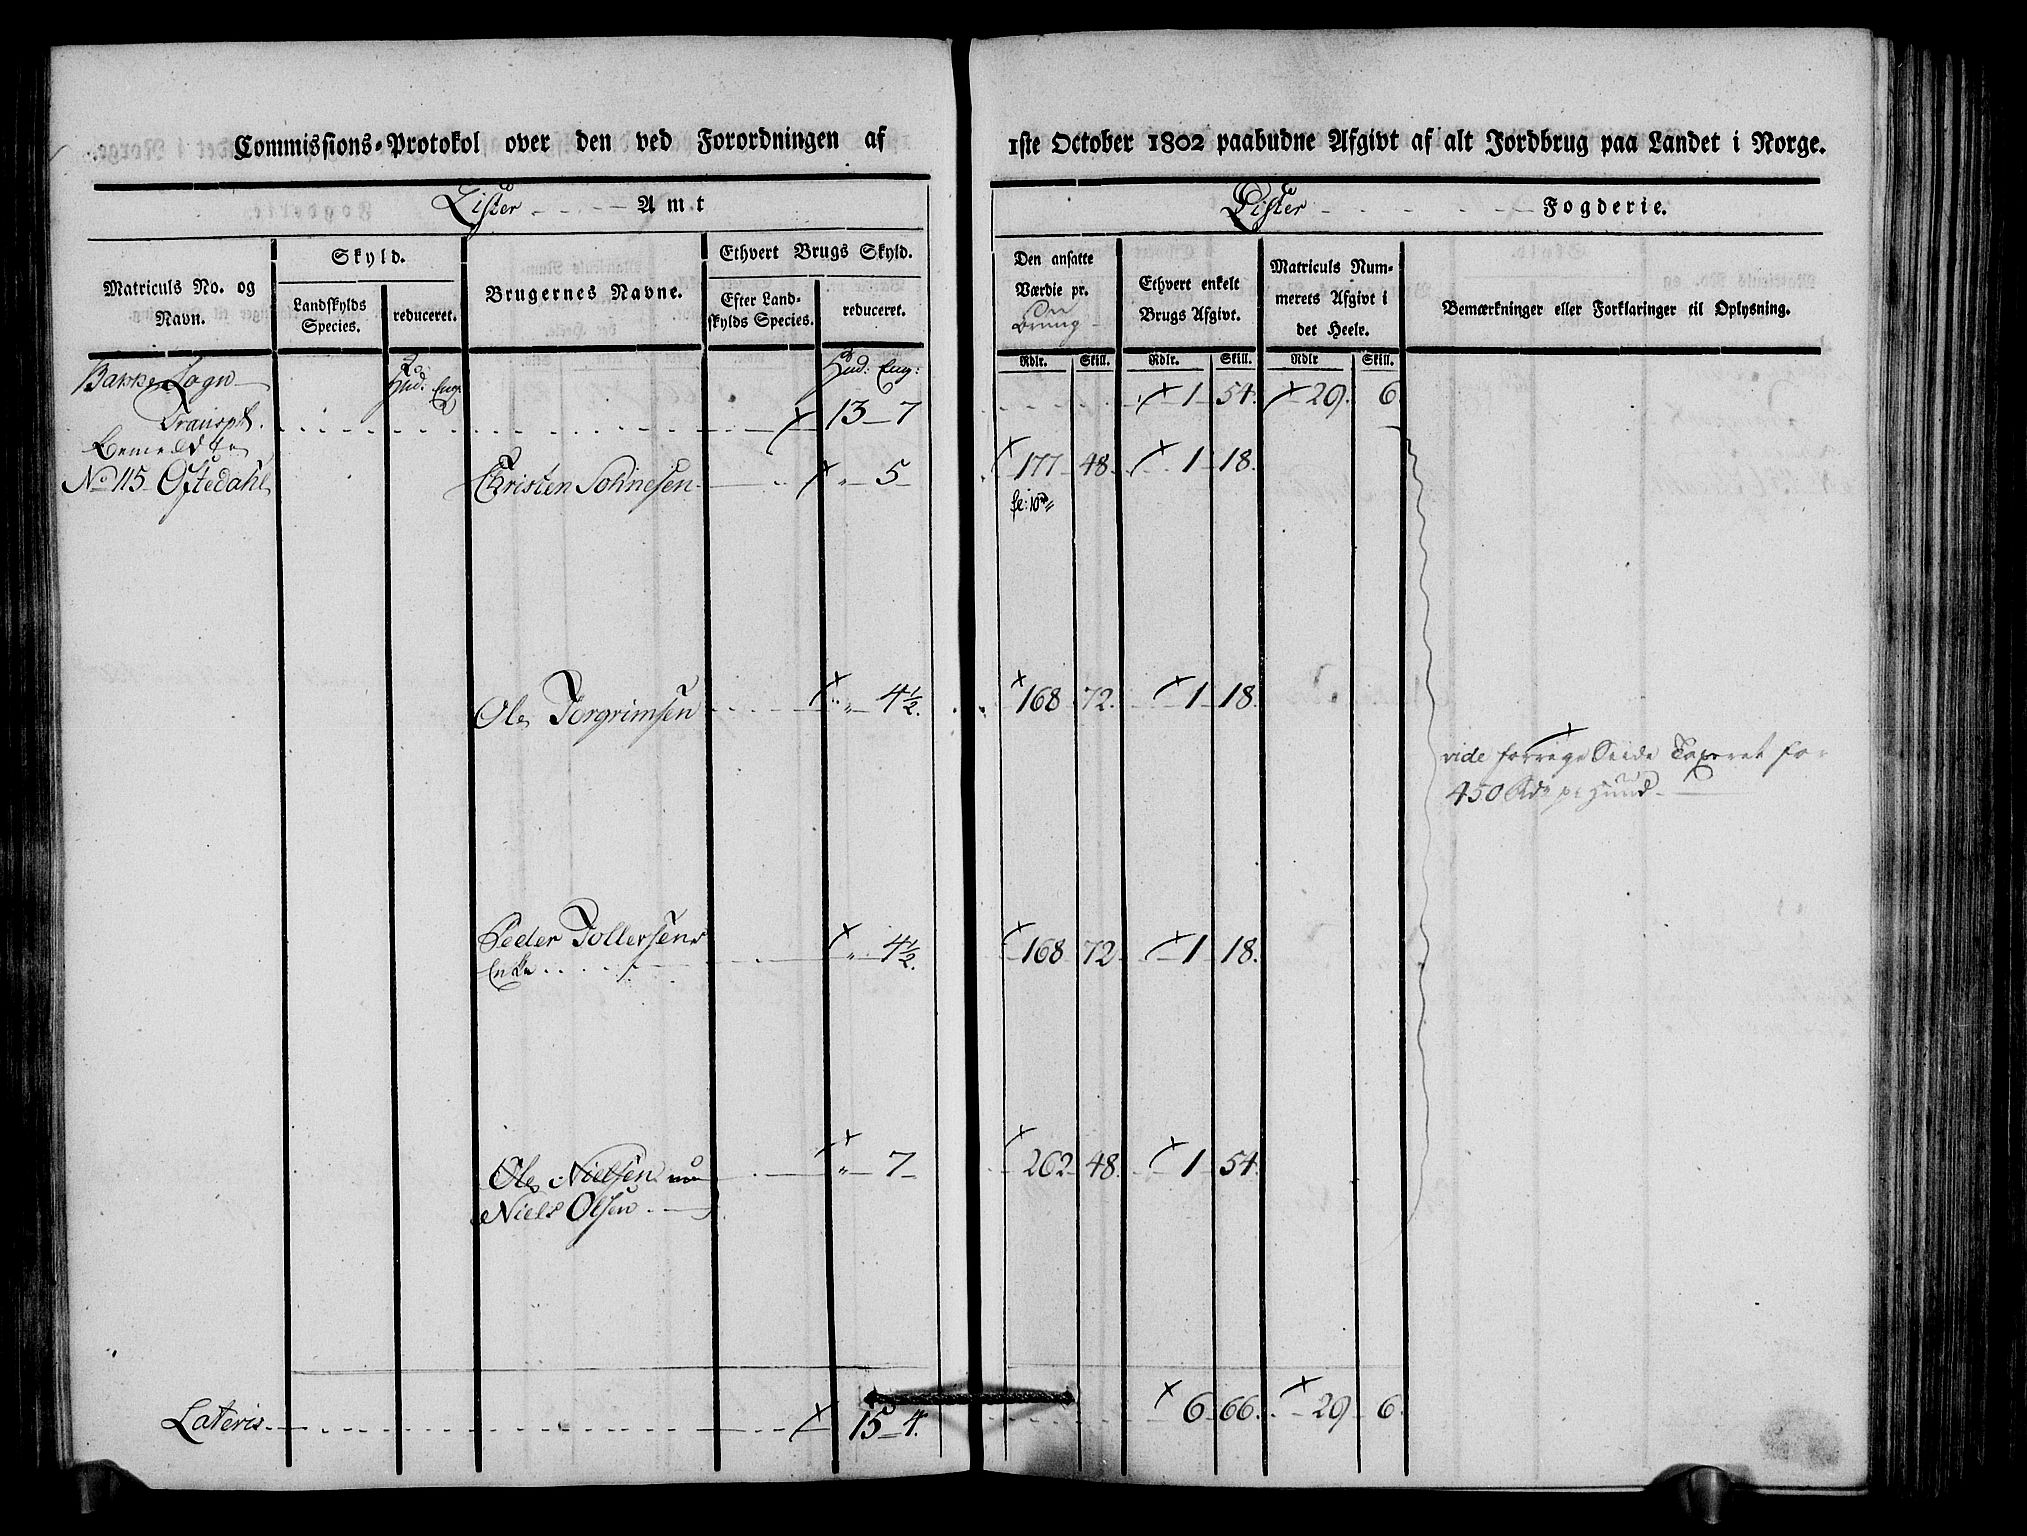 Commissions-Protokol over den ved Forordningen af 1ste October 1802 paabudne Afgivt af alt Jordbrug paa Landet i Norge.
Lister Amt
Lister Fogderie.
Matriculs No. og Navn.
Skyld.
Landskylds Species.
reduceret.
Brugernes Navne.
Ethvert Brugs Skyld.
Efter Landskylds Species.
reduceret.
Den ansatte Værdie pr. Brug
Ethvert enkelt Brugs Afgivt.
Matriculs Nummerets Afgivt i det Heele.
Bemærkninger eller Forklaringer til Oplysning.
Hud: Eng:
Hud: Eng:
Rdlr. Skill. Rdlr. Skill. Rdlr Skill.
Bakke Sogn
Transpt. 13 7 1 54 29 6
No 115 Oftedahl Christen 5 177 48 1 18
Ole Torgrimsen 4½ 168 72 1 18
vide forrige Seide Taxeret for
450 Rdr pr Huud
Peder Tollersens 4½ 168 72 1 18
Enke
Ole Nielsen nu 7 262 48 1 54
Niels Olsen
Lateris 15 4 6 66 29 6